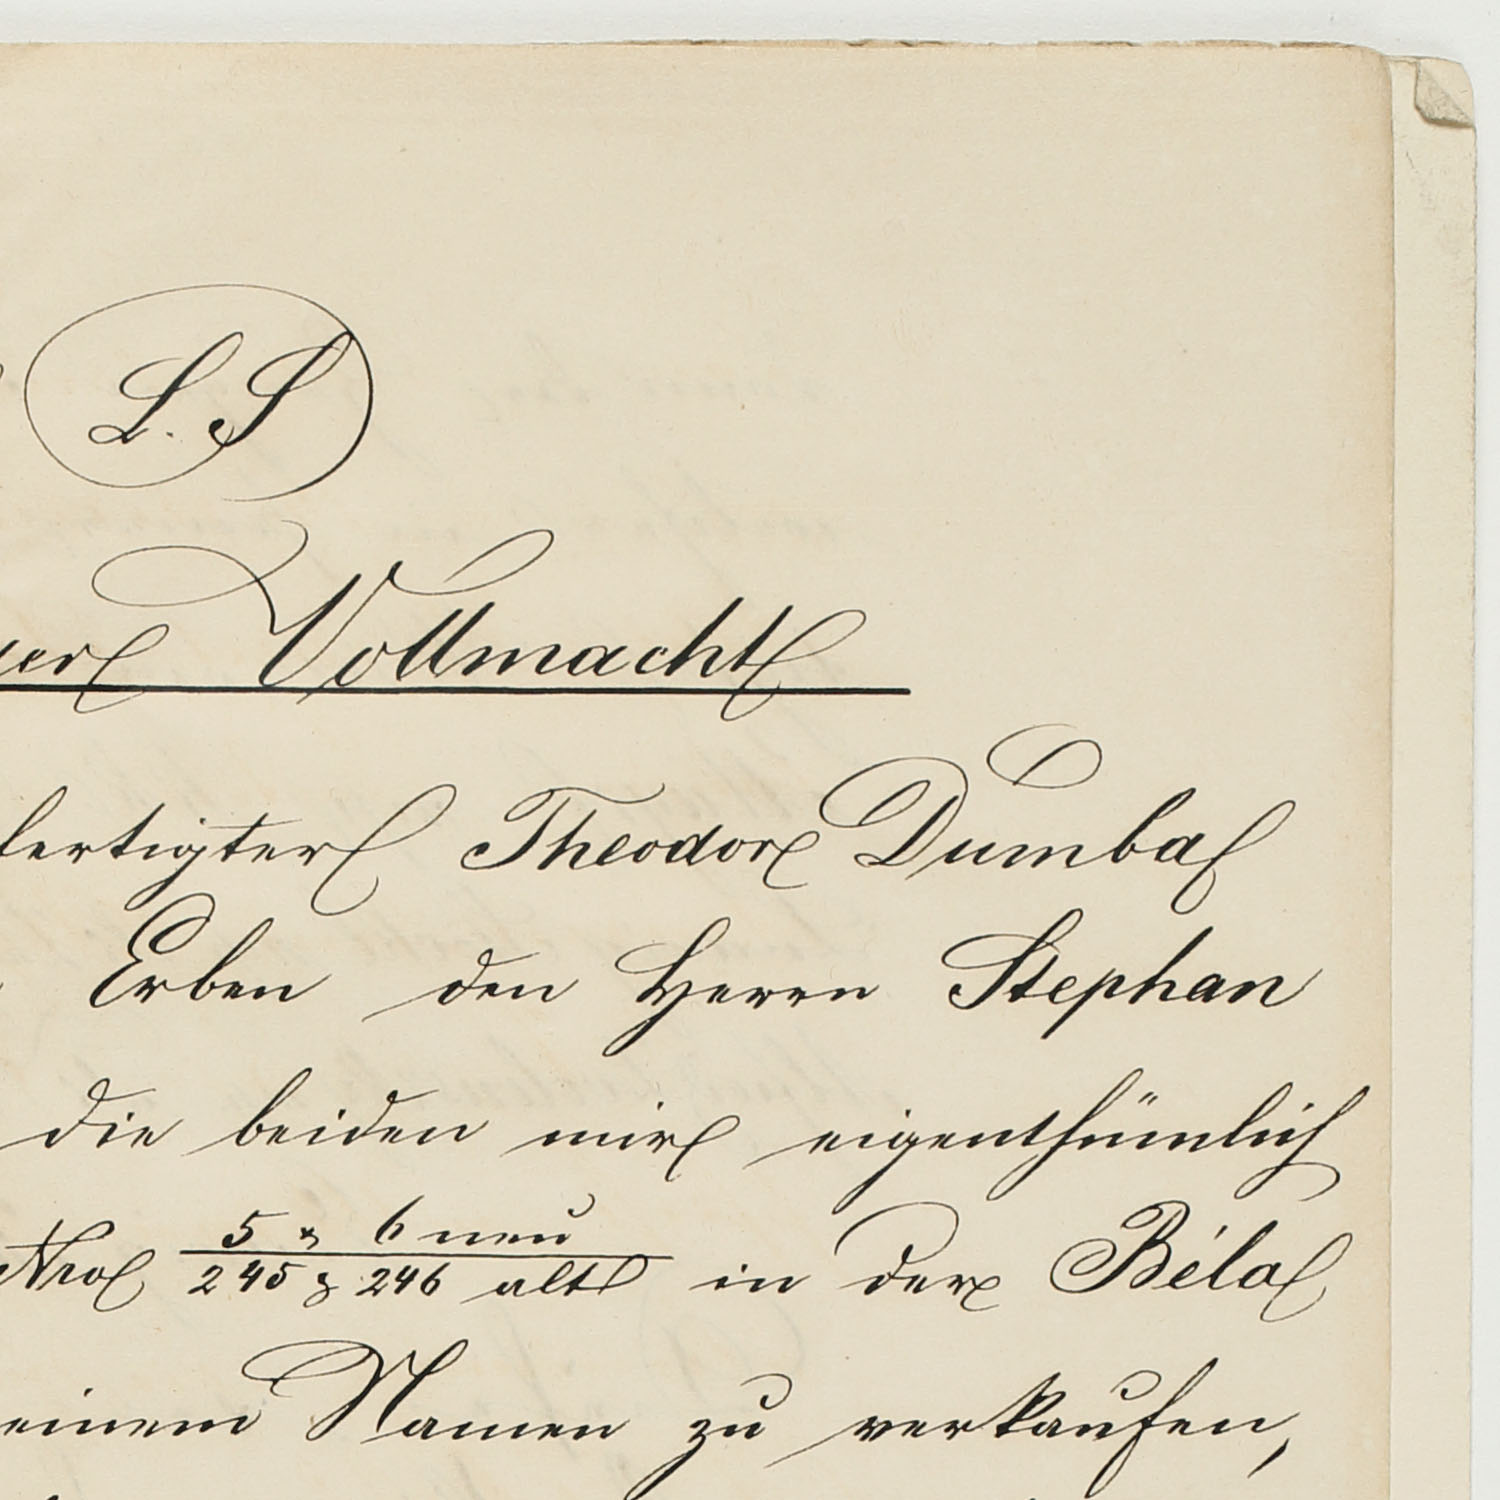 L. S
Vollmacht
fertigter Theodor Dumba
Erben den Herrn Stephan
die beiden mir eigenthümlich
Nro 5 & 6 neu
245 & 246 alt in der Béla
einem Namen zu verkaufen,